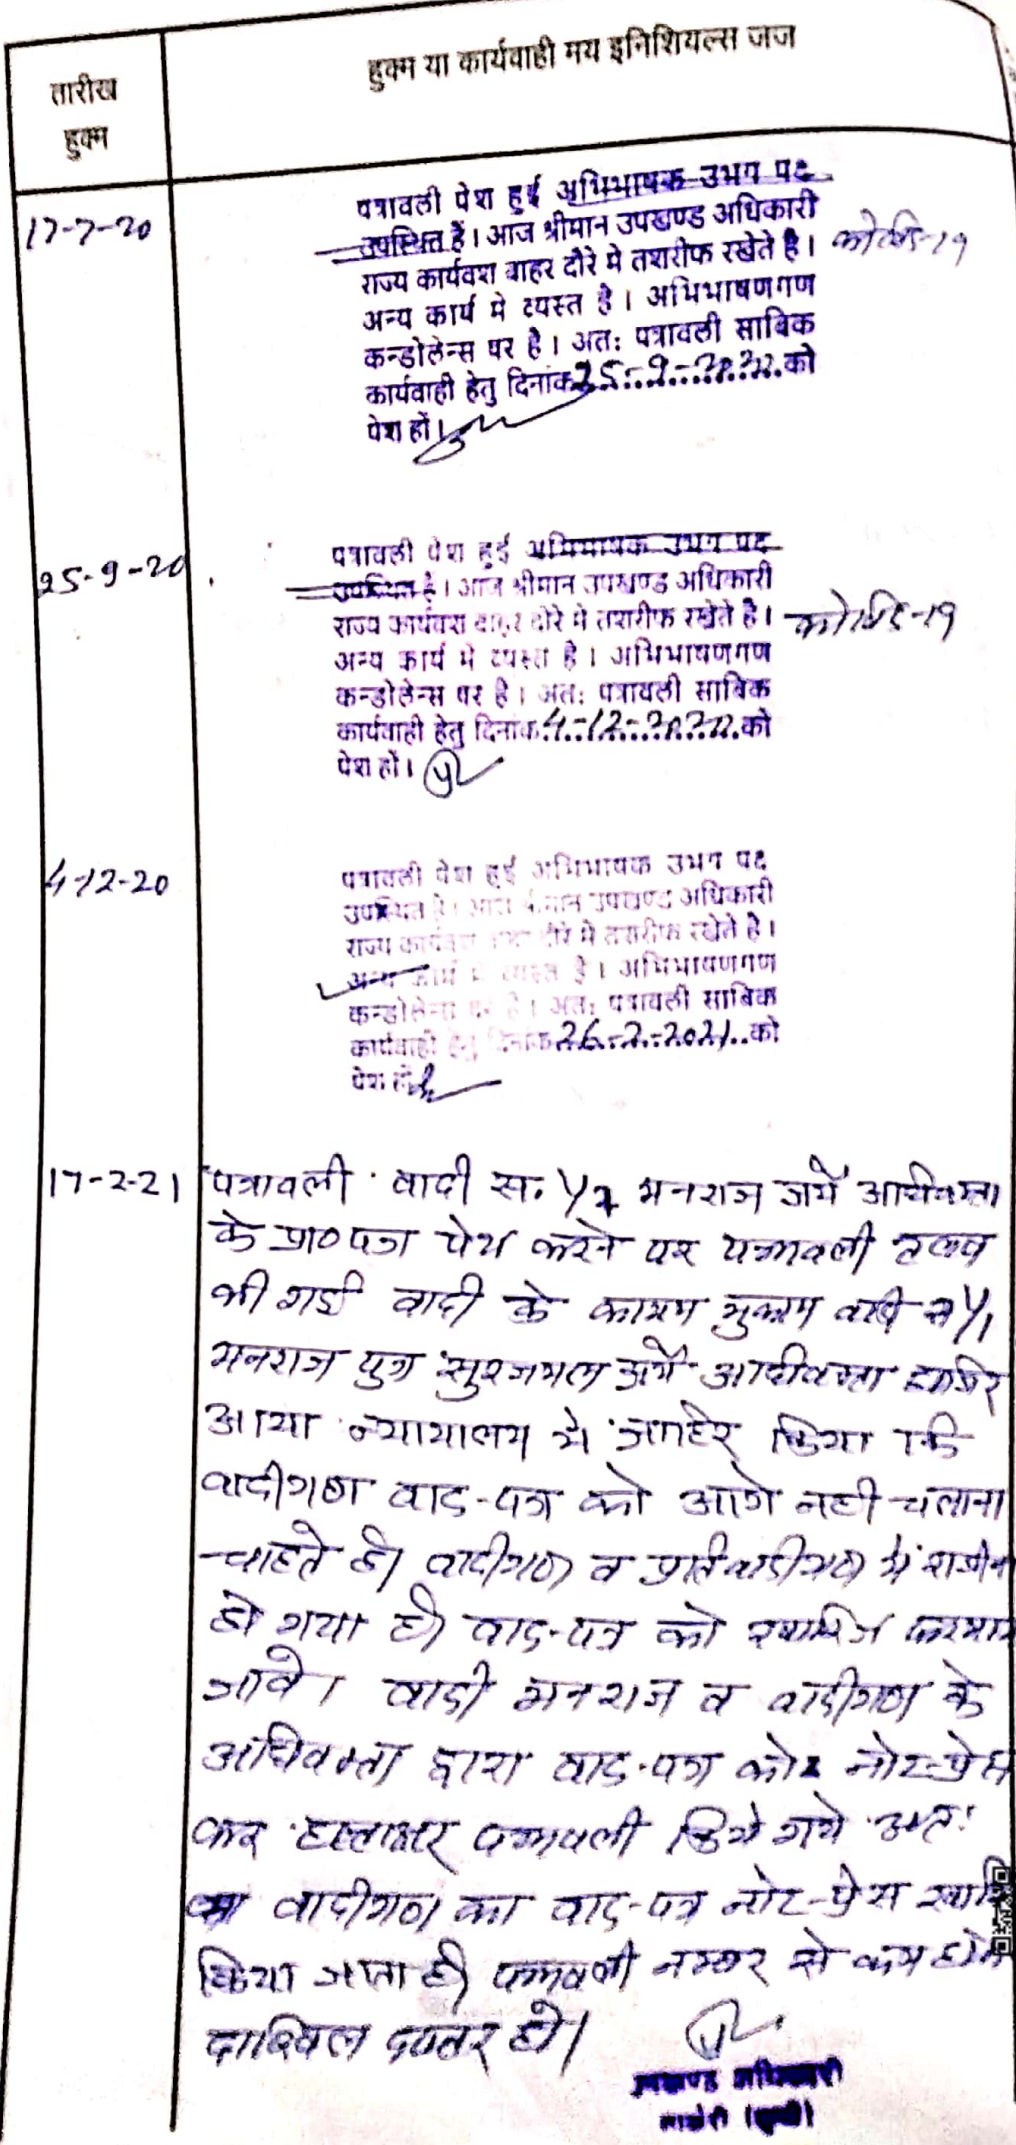 तारीख
हुक्म
हुक्म या कार्यवाही मय इनिशियल्स जज
17-7-20
पत्रावली पेश हुई अभिभाषक उभय पक्ष
उपस्थित हैं। आज श्रीमान उपखण्ड अधिकारी
राज्य कार्यवश बाहर दौरे मे तशरीफ रखेते है। कोविड-19
अन्य कार्य मे व्यस्त है। अभिभाषणगण
कन्डोलेन्स पर है। अतः पत्रावली साबिक
कार्यवाही हेतु दिनांक 25-9-2020 को
पेश हों।
25-9-20
पत्रावली पेश हुई अभिभाषक उभय पक्ष
उपस्थित है। आज श्रीमान उपखण्ड अधिकारी
राज्य कार्यवश बाहर दौरे मे तशरीफ रखेते है। कोविड-19
अन्य कार्य मे व्यस्त है। अभिभाषणगण
कन्डोलेन्स पर है। अतः पत्रावली साबिक
कार्यवाही हेतु दिनांक 4-12-2020 को
पेश हों।
4-12-20
पत्रावली पेश हुई अभिभाषक उभय पक्ष
उपस्थित है। आज श्रीमान उपखण्ड अधिकारी
राज्य कार्यवश बाहर दौरे मे तशरीफ रखेते है।
अन्य कार्य मे व्यस्त है। अभिभाषणगण
कन्डोलेन्स पर है। अतः पत्रावली साबिक
कार्यवाही हेतु दिनांक 26-2-2021 को
पेश हों
17-2-21
पत्रावली वादी स. मनराज जर्ये
के प्रा० पत्र पेश करने पर पत्रावली तलब
की गई वादी के कायम मुकाम वादी स 1/1
मनराज पुत्र सुरजमल जर्ये आदीवक्ता हाजिर
आया न्यायालय मे जाहिर किया कि
वादीगण वाद-पत्र को आगे नही चलाना
चाहते है। वादीगण व प्रतिवादीगण मे
हो गया है। वाद-पत्र को खारिज
जावे। वादी मनराज व वादीगण के
अधिवक्ता द्वारा वाद-पत्र को नोट-प्रेस
कर हस्ताक्षर पत्रावली किये गये अतः
वादीगण का वाद-पत्र नोट-प्रेस
किया जाता है। पत्रावली नम्बर से कम
दाखिल दफ्तर हो।
उपखण्ड अधिकारी